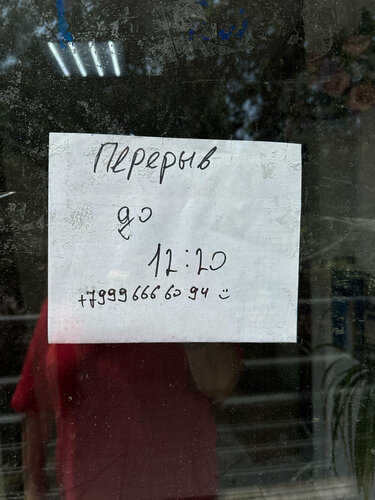 Перерыв
до
12:20
+7999 666 60 94 :)